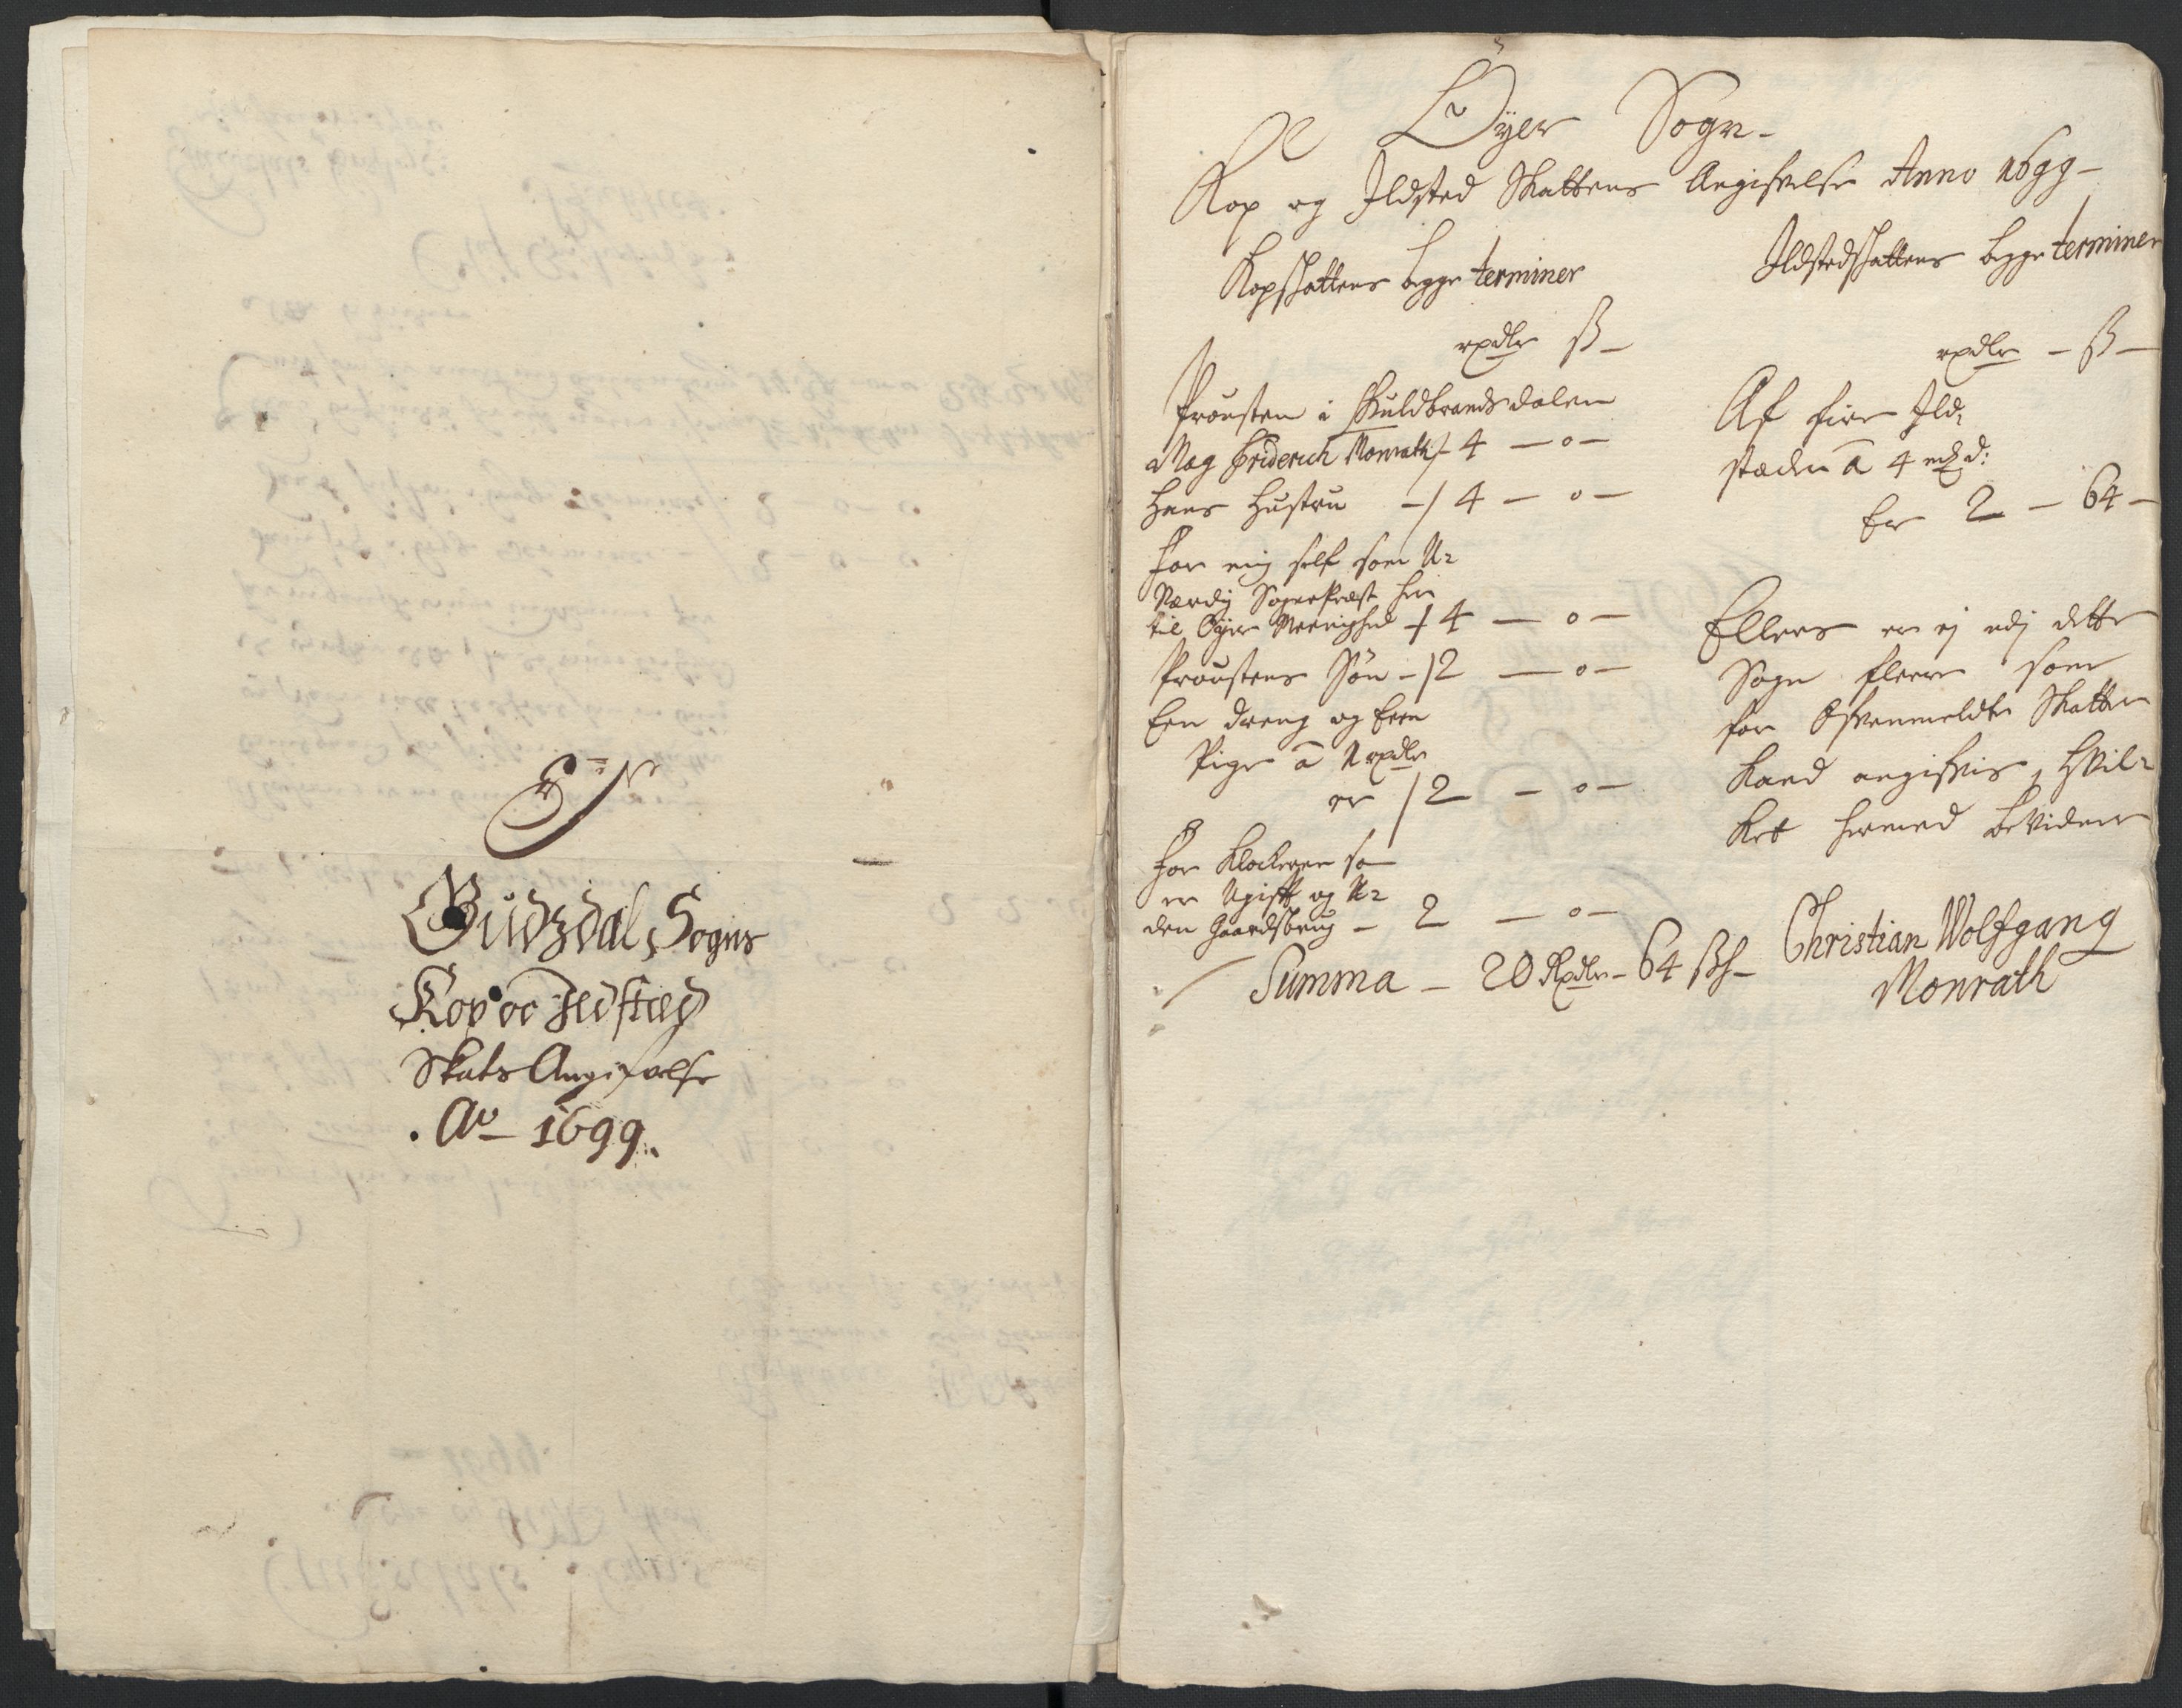 Gudzdal, Sogns
Kop oc Jldsted
Skats Angifvelse
Ao 1699.
Øyer Sogn
Kop og Ildsted Skattens Angifvelse Anno 1699
Kopskattens begge terminer
rxdlr ß
Proustn i Guldbrandsdalen
Mag Friderich Monrath 4 - 0 -
Hans Hustru - 4 - 0 -
For mig self som U=
Værdig Sognepræst her
til Øyer Menighed 4 - 0 -
Proustens Søn - 2 - 0 -
Een dreng og Een
Pige â 1 rxdlr
er 2 - 0 -
For Klockeren som
er Ugift og U=
den Gaardsbrug - 2 - 0 -
Summa - 20 Rxdlr - 64 ß
Ildstedskattens begge terminer
rxdlr - ß -
Af fire Ild=
stæder â 4 :
Er 2 - 64 -
Ellers er ej udj dette
Sogn fleere som
for Ofvenmeldte Skatter
Kand angifvis, Hvil=
Ket hermed bevidner
Christian Wolfgang
Monrath